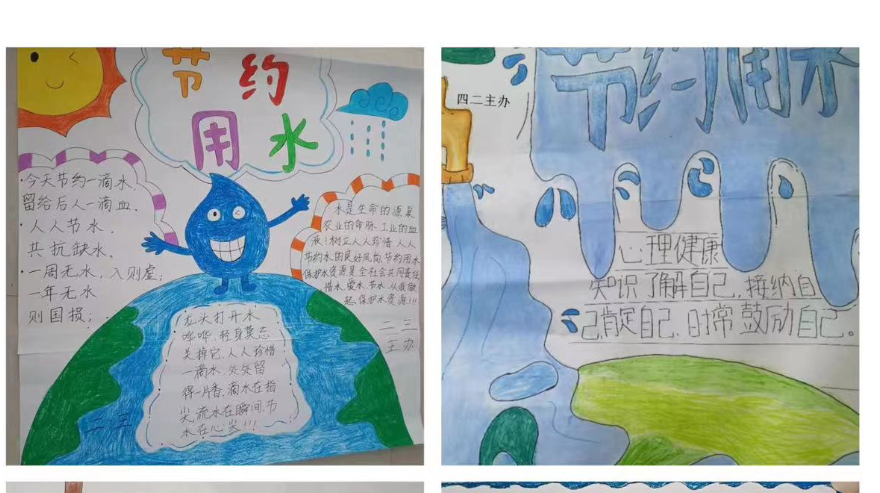 节约
用水
·今天节约一滴水,
留给后人一滴血.
·人人节水,
共抗缺水.
·一周无水,人则虚;
一年无水
则国损;
水是生命的源泉
农业的命脉,工业的血
液!树立人人珍惜,人人
节约水的良好风尚,节约用水
保护水资源是全社会共同责任
惜水、爱水、节水,从我做
起,保护水资源!!!
龙头打开水
哗哗,轻身莫忘
关掉它,人人珍惜
一滴水,处处留
得一片香,滴水在指
尖,流水在瞬间,节
水在心尖!!!
二三
主办
节约用水
四二主办
心理健康
知识了解自己,接纳自
己,肯定自己,时常鼓励自己。